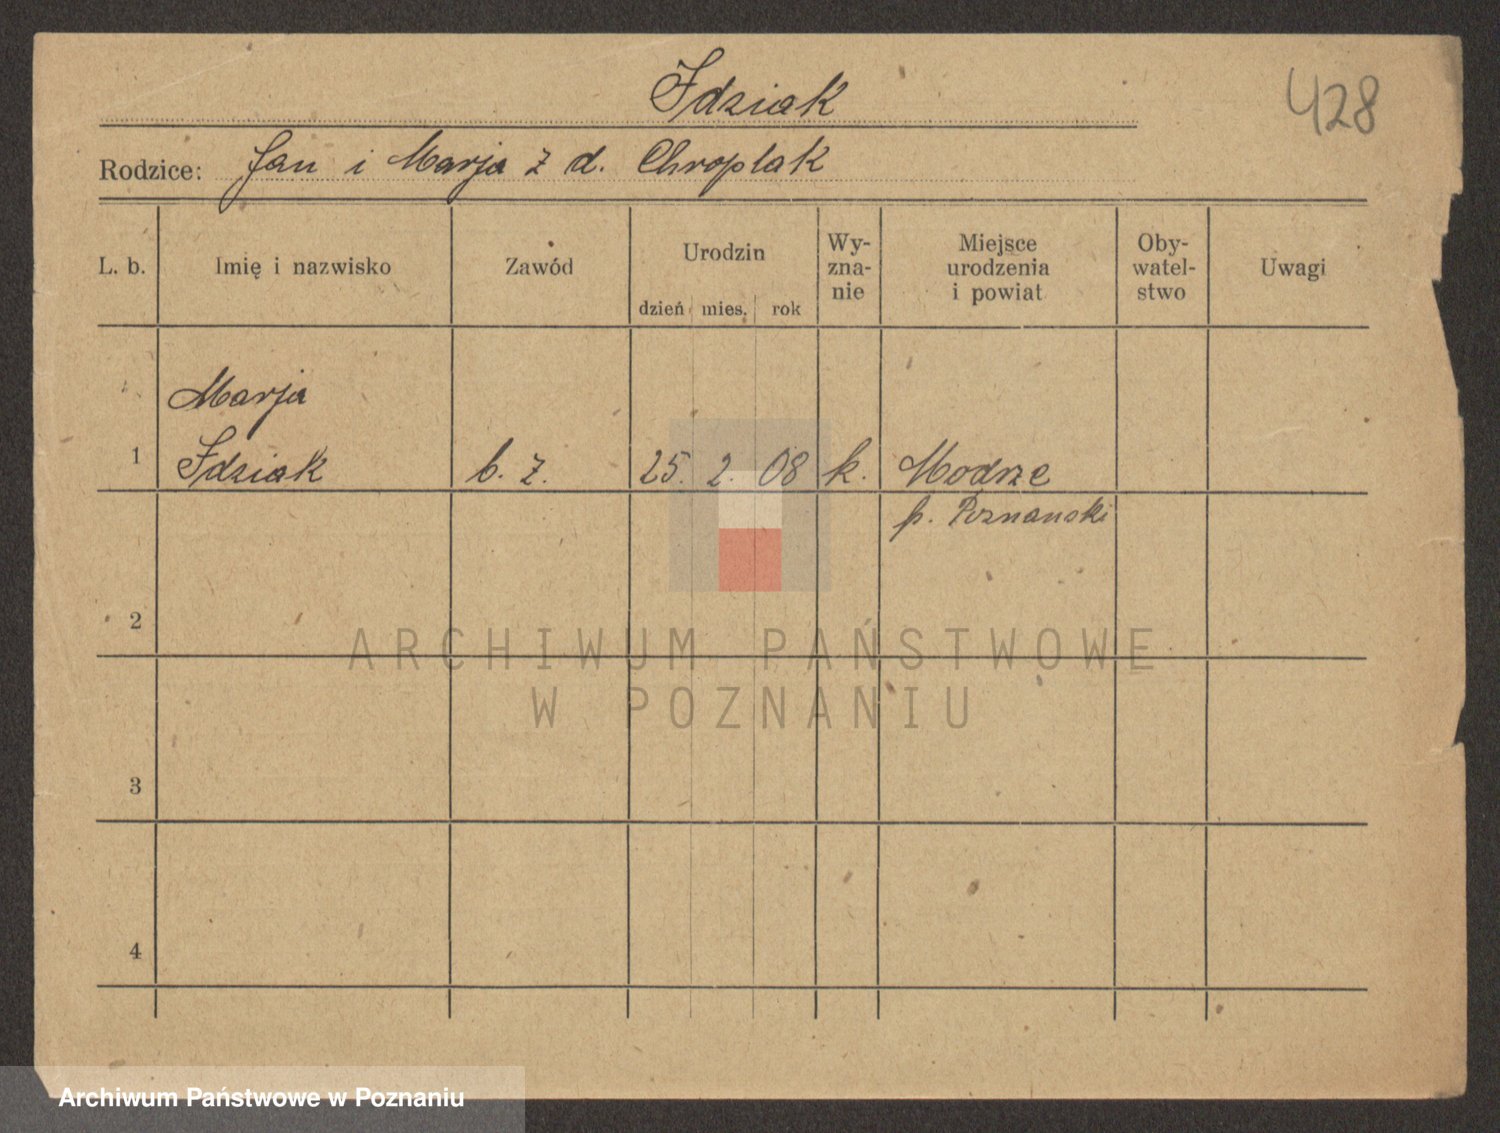 Idziak
428
Rodzice: Jan i Marja z d. Chroplak
L. b. Imię i nazwisko Zawód Urodzin dzień mies. rok Wy-zna-nie Miejsce urodzenia i powiat Oby-watel-stwo Uwagi
Marja
1 Idziak b. z. 25. 2. 08 k. Modrze
p. Poznanski
2
ARCHIWUM PAŃSTWOWE
W POZNANIU
3
4
Archiwum Państwowe w Poznaniu